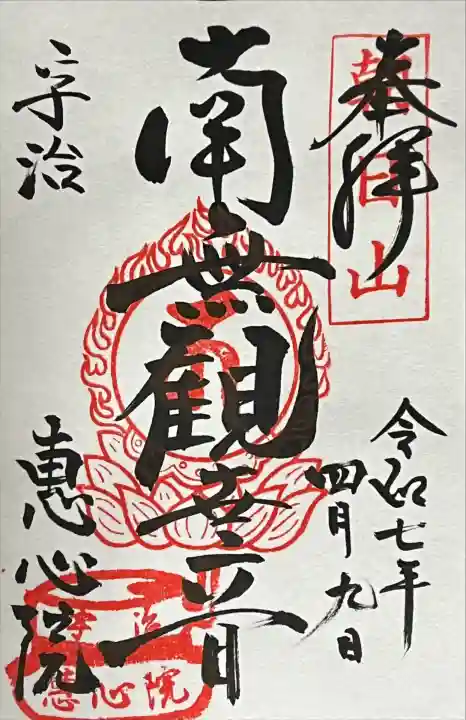 奉拝
朝日山
令和七年
四月九日
南無觀世音
宇治
恵心院
宇治
恵心院